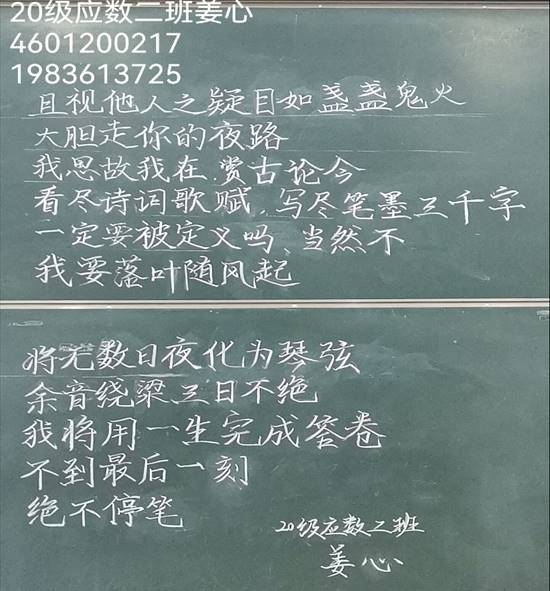 20级应数二班姜心
4601200217
1983613725
且视他人之疑目如盏盏鬼火
大胆走你的夜路
我思故我在 赏古论今
看尽诗词歌赋,写尽笔墨三千字
一定要被定义吗、当然不
我要落叶随风起
将无数日夜化为琴弦
余音绕梁三日不绝
我将用一生完成答卷
不到最后一刻
绝不停笔
20级应数二班
姜心